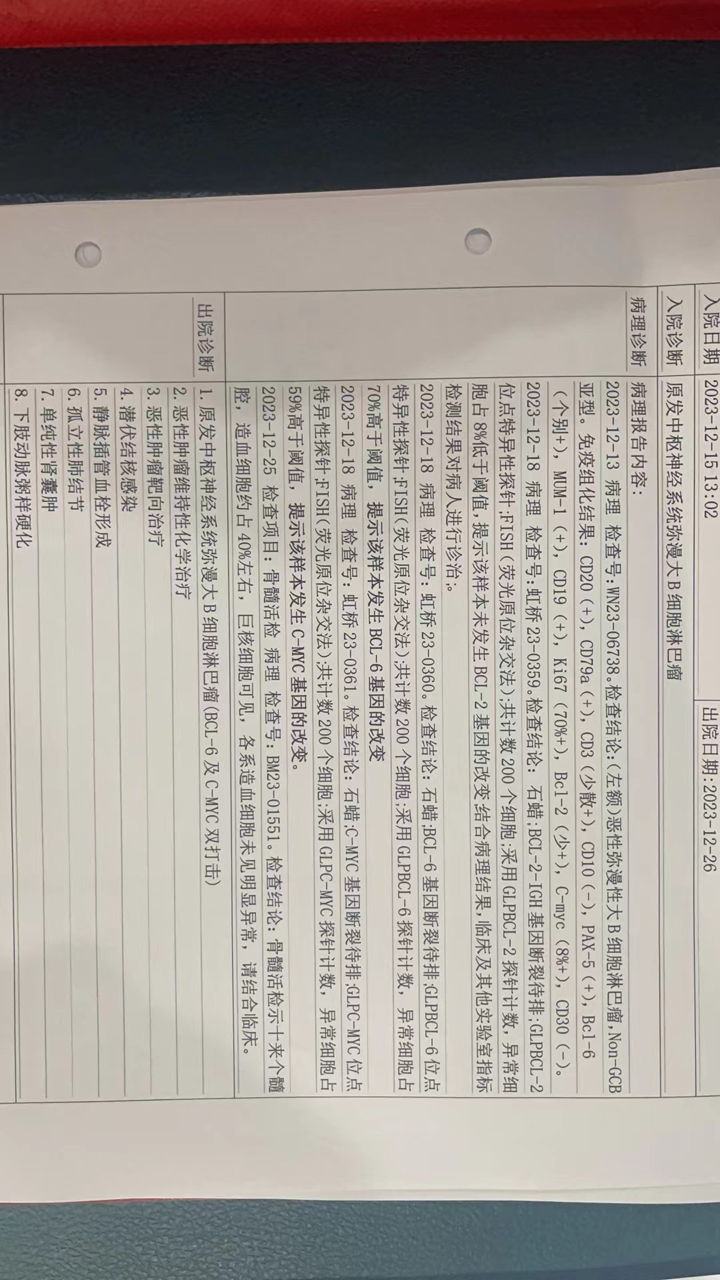 入院日期 2023-12-15 13:02 出院日期:2023-12-26
入院诊断 原发中枢神经系统弥漫大B细胞淋巴瘤
病理诊断 病理报告内容:
2023-12-13 病理 检查号:WN23-06738。检查结论:(左额)恶性弥漫性大B细胞淋巴瘤,Non-GCB
亚型。免疫组化结果: CD20(+), CD79a(+), CD3(少散+), CD10(-), PAX-5(+), Bcl-6
(个别+), MUM-1(+), CD19(+), Ki67(70%+), Bcl-2(少+), C-myc(8%+), CD30(-)。
2023-12-18 病理 检查号:虹桥23-0359。检查结论: 石蜡:BCL-2-IGH基因断裂待排;GLPBCL-2
位点特异性探针;FISH(荧光原位杂交法);共计数200个细胞;采用GLPBCL-2探针计数, 异常细
胞占8%低于阈值, 提示该样本未发生BCL-2基因的改变;结合病理结果,临床及其他实验室指标
检测结果对病人进行诊治;。
2023-12-18 病理 检查号: 虹桥23-0360。检查结论: 石蜡;BCL-6基因断裂待排;GLPBCL-6位点
特异性探针;FISH(荧光原位杂交法);共计数200个细胞;采用GLPBCL-6探针计数, 异常细胞占
70%高于阈值, 提示该样本发生BCL-6基因的改变
2023-12-18 病理 检查号: 虹桥23-0361。检查结论: 石蜡;C-MYC基因断裂待排;GLPC-MYC位点
特异性探针;FISH(荧光原位杂交法);共计数200个细胞;采用GLPC-MYC探针计数, 异常细胞占
59%高于阈值, 提示该样本发生C-MYC基因的改变。
2023-12-25 检查项目: 骨髓活检 病理 检查号: BM23-01551。检查结论: 骨髓活检示十来个髓
腔, 造血细胞约占40%左右, 巨核细胞可见, 各系造血细胞未见明显异常, 请结合临床。
出院诊断 1. 原发中枢神经系统弥漫大B细胞淋巴瘤(BCL-6及C-MYC双打击)
2. 恶性肿瘤维持性化学治疗
3. 恶性肿瘤靶向治疗
4. 潜伏结核感染
5. 静脉插管血栓形成
6. 孤立性肺结节
7. 单纯性肾囊肿
8. 下肢动脉粥样硬化